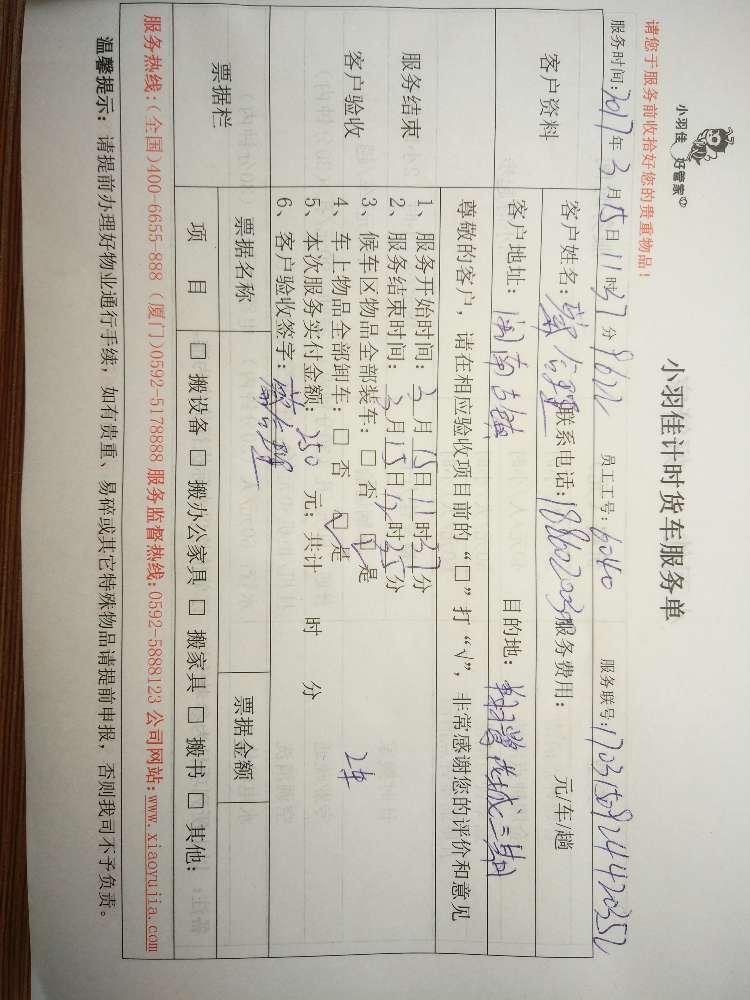 请您于服务前收拾好您的贵重物品!
小羽佳 好管家
小羽佳计时货车服务单
服务时间: 2017 年 3 月 15 日 11 时 37 分 9622 员工工号: 6040 服务联号: 170315092442035 2
客户资料
客户姓名: 联系电话: 服务费用: 元/车/趟
客户地址: 闽南古镇 目的地:
服务结束
客户验收
尊敬的客户, 请在相应验收项目前的“□”打“√”, 非常感谢您的评价和意见
1、服务开始时间: 3 月 15 日 11 时 37 分
2、服务结束时间: 3 月 15 日 12 时 35 分
3、候车区物品全部装车: □ 否 □ 是
4、车上物品全部卸车: □ 否 □ 是
5、本次服务实付金额: 250 元; 共计 时 分
6、客户验收签字:
2车
票据栏
票据名称 票据金额
项 目 □ 搬设备 □ 搬办公家具 □ 搬家具 □ 搬书 □ 其他:
服务热线:(全国)400-6655-888 (厦门)0592-5178888 服务监督热线:0592-5888123 公司网站:www.xiaoyujia.com
温馨提示: 请提前办理好物业通行手续, 如有贵重、易碎或其它特殊物品请提前申报, 否则我司不予负责。